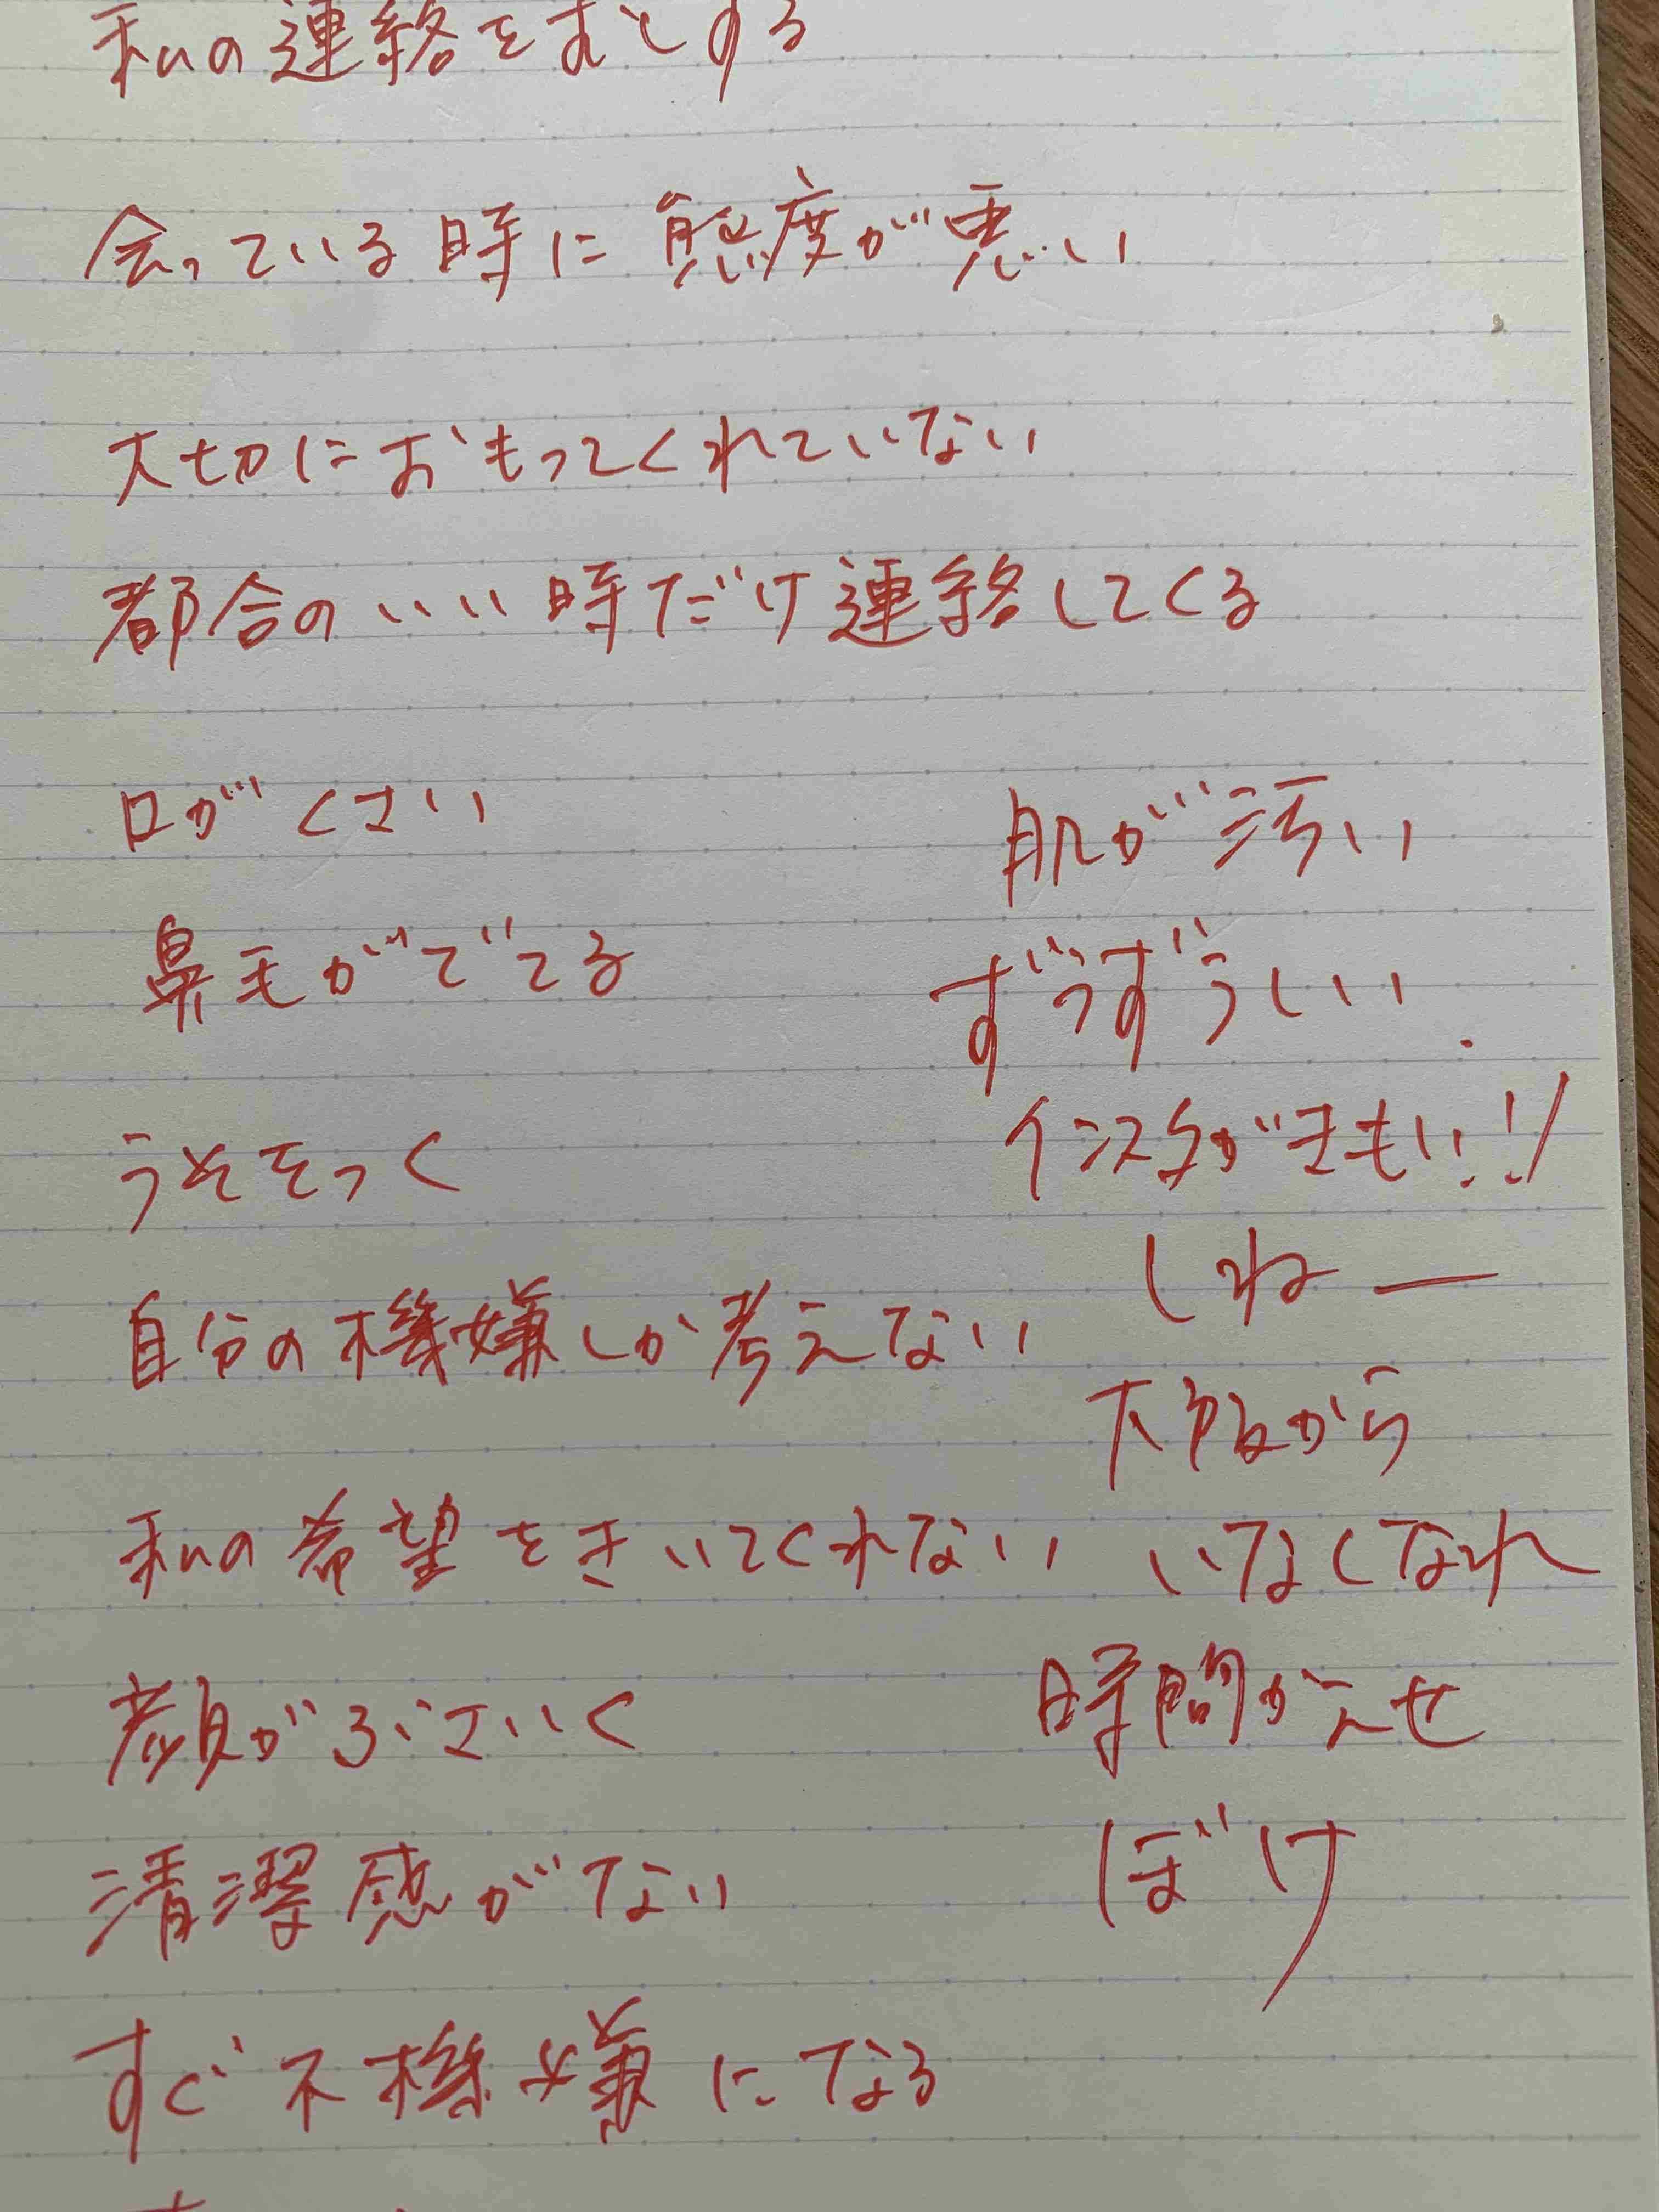 私の連絡をむしする
会っている時に態度が悪い
大切におもってくれていない
都合のいい時だけ連絡してくる
口がくさい
鼻毛がでてる
うそをつく
自分の機嫌しか考えない
私の希望をきいてくれない
顔がぶさいく
清潔感がない
すぐ不機嫌になる
肌が汚い
ずうずうしい
インスタがきもい!!
しねー
大阪から
いなくなれ
時間かえせ
ぼけ